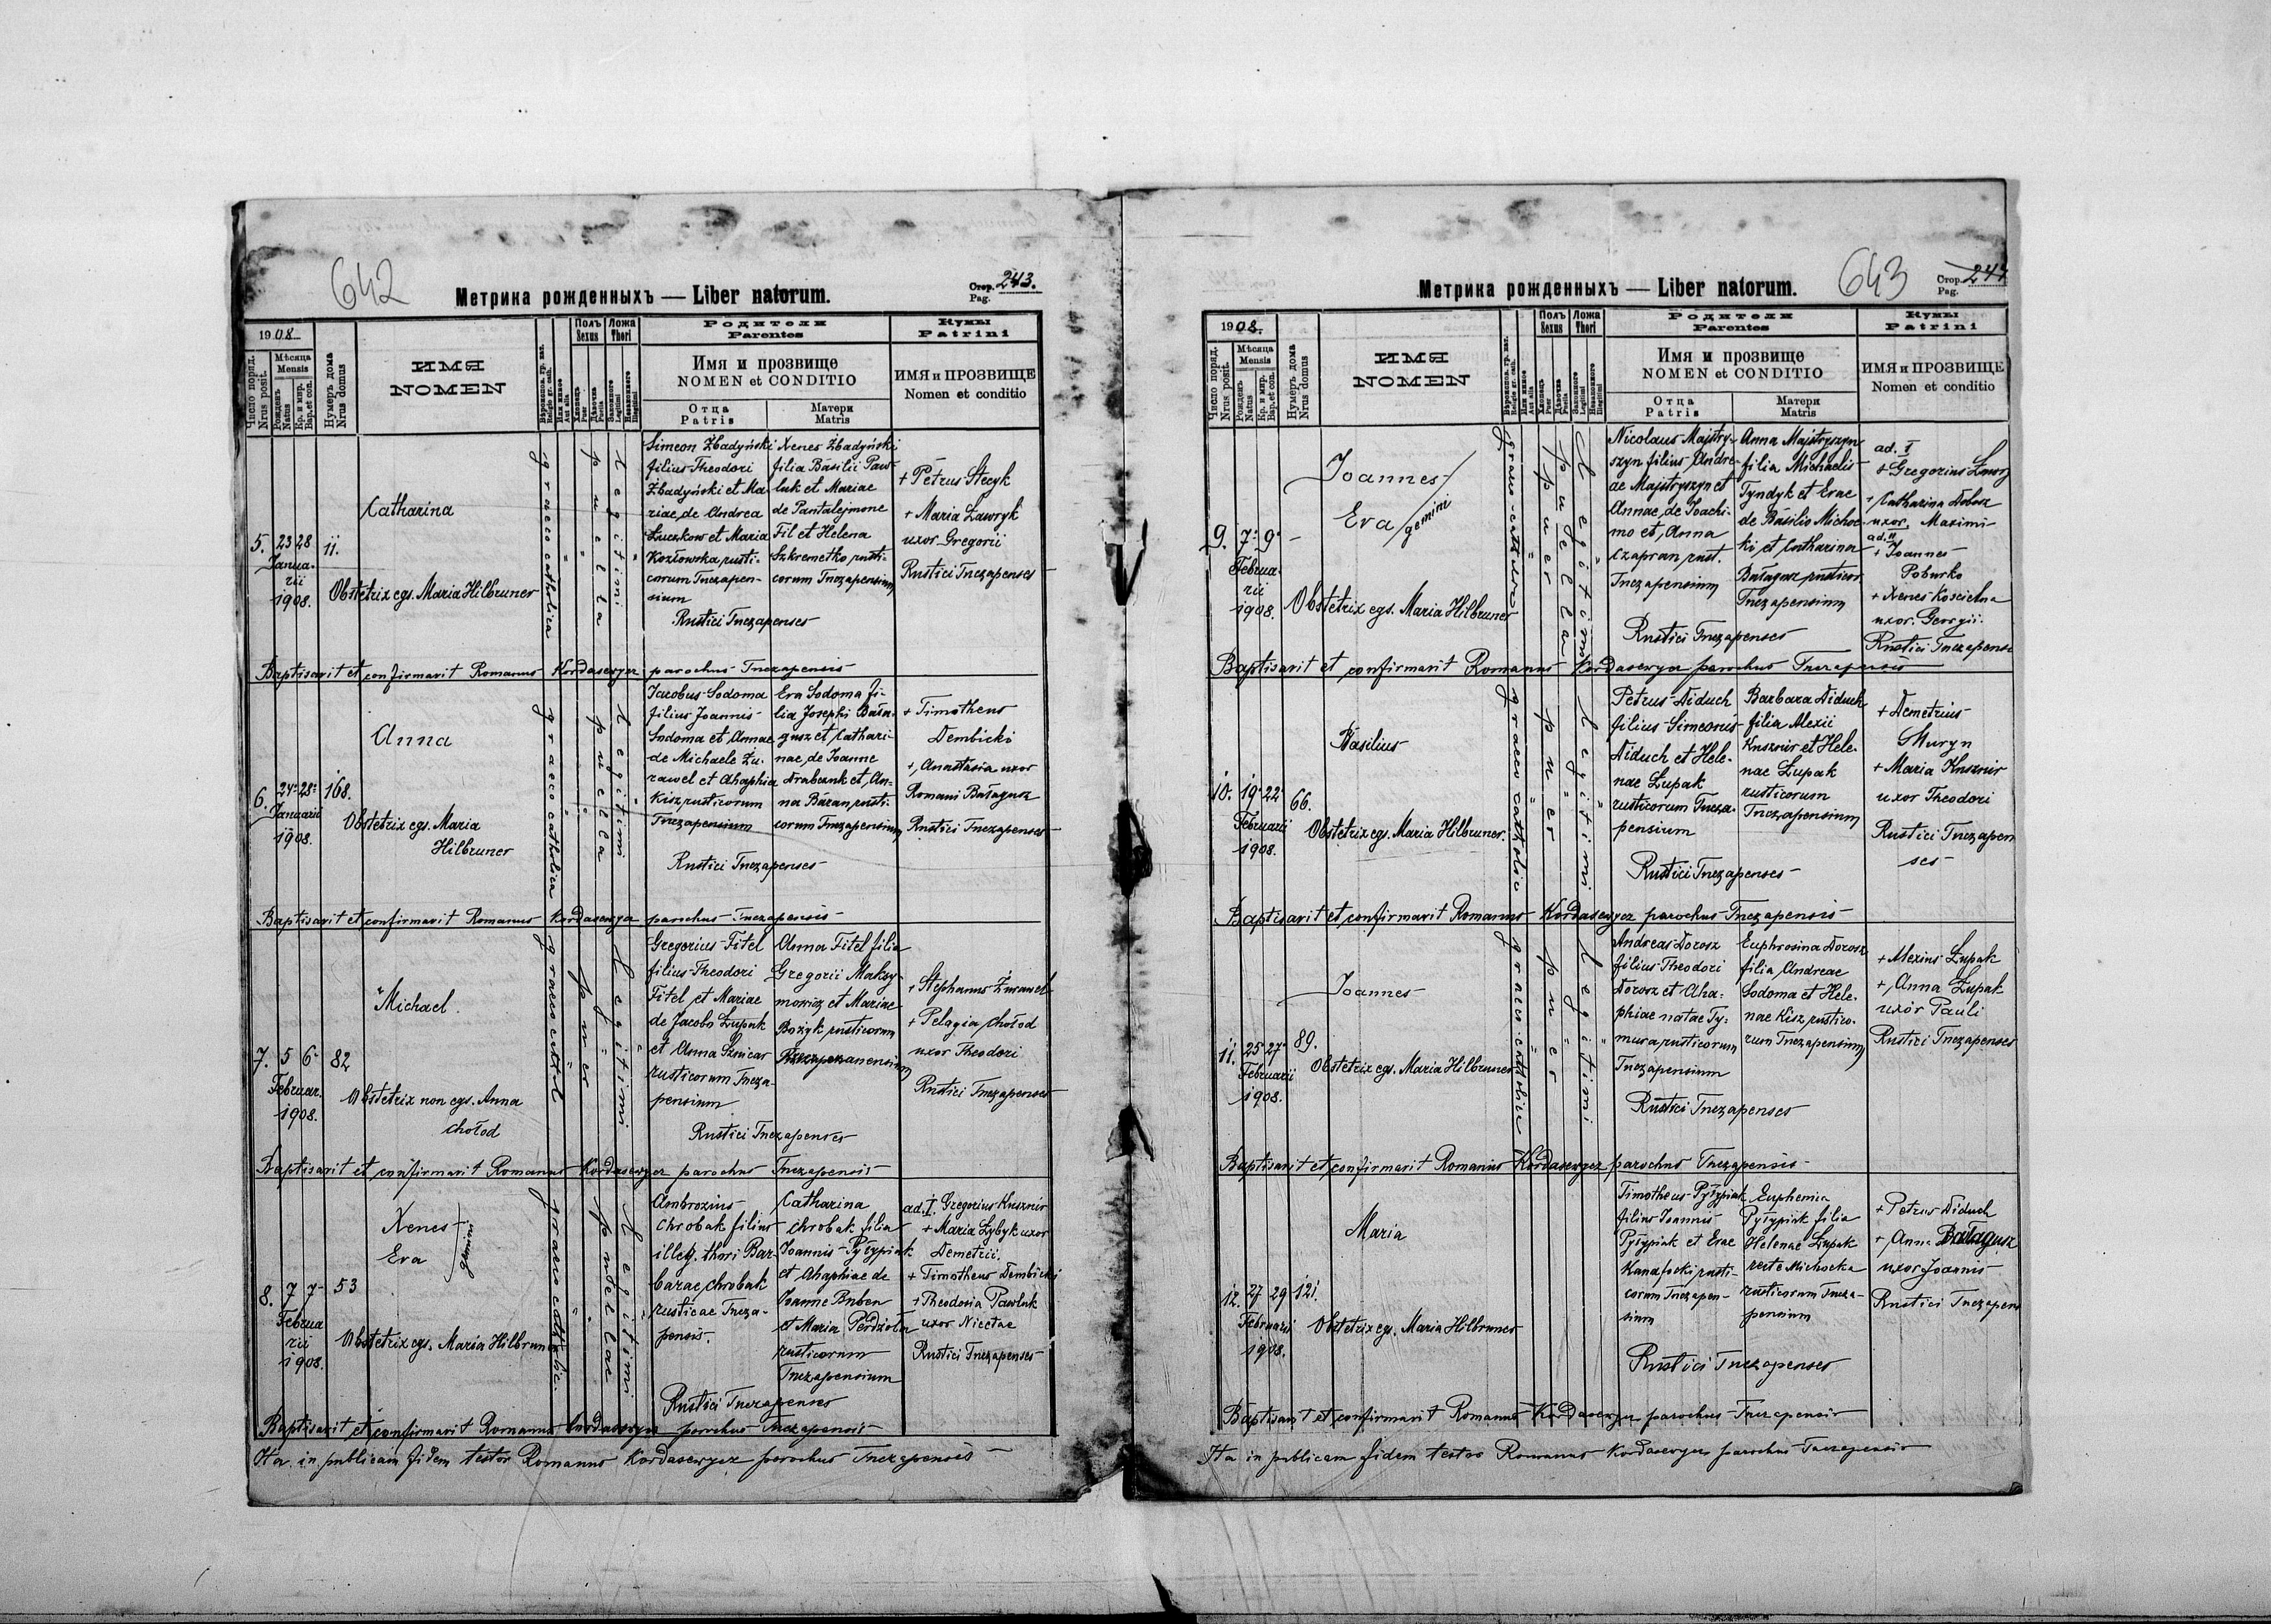 642
Метрика рожденныхъ — Liber natorum.
Стор. 243.
Pag.
1908
Число поряд.
Nrus posit.
Мѣсяца
Mensis
Рожденъ
Natus
Кр. и мир.
Bap. et con.
Нумеръ дома
Nrus domus
ИМЯ
NOMEN
Вѣроиспов. гр. каѳ.
Religio gr. cath.
Или инное
Aut alia
Полъ
Sexus
Хлопецъ
Puer
Дѣвочка
Puella
Ложа
Thori
Законного
Legitimi
Незаконного
Illegitimi
Родители
Parentes
Имя и прозвище
NOMEN et CONDITIO
Отца
Patris
Матери
Matris
Кумы
Patrini
ИМЯ и ПРОЗВИЩЕ
Nomen et conditio
5. 23 28
Janua-
rii
1908.
11.
Catharina
Obstetrix egs. Maria Hilbruner
graeco catholica
puella
Legitimi
Simeon Zbadyński
filius Theodori
Zbadyński et Ma-
riae, de Andrea
Łuczkow et Maria
Kozłowska, rusti-
corum Tnezapen-
sium
Xenes Zbadyński
filia Basilii Paw-
luk et Mariae
de Pantalejmone
Fil et Helena
Szkremetko, rusti-
corum Tnezapensium
Rustici Tnezapenses
+ Petrus Stecyk
+ Maria Ławryk
uxor Gregorii
Rustici Tnezapenses
Baptisavit et confirmavit Romanus Kordasewycz parochus Tnezapensis
6. 24 28
Januarii
1908.
168.
Anna
Obstetrix egs. Maria
Hilbruner
graeco catholica
puella
Legitimi
Jacobus Sodoma
filius Joannis
Sodoma et Annae
de Michaele Żu-
rawel et Ahaphia
Kisz, rusticorum
Tnezapensium
Eva Sodoma fi-
lia Josephi Bała-
gusz et Cathari-
nae, de Joanne
Hrabcank et, An-
na Baran, rusti-
corum Tnezapensium
Rustici Tnezapenses
+ Timotheus
Dembicki
+ Anastasia uxor
Romani Bałagusz
Rustici Tnezapenses
Baptisavit et confirmavit Romanus Kordasewycz parochus Tnezapensis
7. 5 6
Februar.
1908.
82
Michael.
Obstetrix non egs. Anna
Chołod
graeco cathol
puer
Legitimi
Gregorius Fitel
filius Theodori
Fitel et Mariae
de Jacobo Łupak
et Anna Sznicar
rusticorum Tneza-
pensium
Anna Fitel filia
Gregorii Maksy-
mowicz et Mariae
Bożyk, rusticorum
Rustici Tnezapenses
+ Stephanus Żurawel
+ Pelagia Chołod
uxor Theodori
Rustici Tnezapenses
Baptisavit et confirmavit Romanus Kordasewycz parochus Tnezapensis
8. 7 7
Februa
rii
1908.
53
Xenes
Eva
gemini
Obstetrix egs. Maria Hilbruner
graeco catholic.
puellae
Legitimi
Ambrozius
Chrobak filius
illeg. thori Bar-
barae Chrobak
rusticae Tneza-
pensis.
Catharina
Chrobak filia
Joannis Pyłypiak
et Ahaphiae de
Joanne Buben
et Maria Perdziola
rusticorum
Tnezapensium
Rustici Tnezapenses
ad. I. Gregorius Kusznir
+ Maria Łybyk uxor
Demetrii.
+ Timotheus Dembicki
+ Theodosia Pawluk
uxor Nicetae
Rustici Tnezapenses
Baptisavit et confirmavit Romanus Kordasewycz parochus Tnezapensis
Ita in publicam fidem testor Romanus Kordasewycz parochus Tnezapensis
643
Метрика рожденныхъ — Liber natorum.
Стор. 244
Pag.
1908.
Число поряд.
Nrus posit.
Мѣсяца
Mensis
Рожденъ
Natus
Кр. и мир.
Bap. et con.
Нумеръ дома
Nrus domus
ИМЯ
NOMEN
Вѣроиспов. гр. каѳ.
Religio gr. cath.
Или инное
Aut alia
Полъ
Sexus
Хлопецъ
Puer
Дѣвочка
Puella
Ложа
Thori
Законного
Legitimi
Незаконного
Illegitimi
Родители
Parentes
Имя и прозвище
NOMEN et CONDITIO
Отца
Patris
Матери
Matris
Кумы
Patrini
ИМЯ и ПРОЗВИЩЕ
Nomen et conditio
9. 7. 9.
Februa
rii
1908.
Joannes
Eva
gemini
Obstetrix egs. Maria Hilbruner
graeco-catholico
puer
puella
Legitimo
Nicolaus Majstry-
szyn filius Andre-
ae Majstryszyn et
Annae, de Joachi-
mo et, Anna
Czapran rust.
Tnezapensium
Anna Majstryszyn
filia Michaelis
Tyndyk et Evae
de Basilio Michoc-
ki et, Catharina
Bałagusz, rusticor.
Tnezapensium
Rustici Tnezapenses
ad. I
+ Gregorius
+ Catharina
uxor. Maximi-
ad. II
+ Joannes
Poburko
+ Xenes Koscielna
uxor. Georgii.
Rustici Tnezapens
Baptisavit et confirmavit Romanus Kordasewycz parochus Tnezapensis
10. 19. 22
Februarii
1908.
66.
Basilius
Obstetrix egs. Maria Hilbruner.
graeco catholic
puer
Legitimi
Petrus Diduch
filius Simeonis
Diduch et Hele-
nae Łupak
rusticorum Tneza-
pensium
Barbara Diduch
filia Alexii
Kusznir et Hele-
nae Łupak
rusticorum
Tnezapensium
Rustici Tnezapenses
+ Demetrius
Skuryn
+ Maria Kusznir
uxor Theodori
Rustici Tnezapen
ses
Baptisavit et confirmavit Romanus Kordasewycz parochus Tnezapensis
11. 25 27
Februarii
1908.
89.
Joannes
Obstetrix egs. Maria Hilbruner
graeco-catholicu
puer
Legitimi
Andreas Dorosz
filius Theodori
Dorosz et Aha-
phiae natae Ty-
mura, rusticorum
Tnezapensium
Euphrosina Dorosz
filia, Andreae
Sodoma et Hele-
nae Kisz, rustico-
rum Tnezapensium
Rustici Tnezapenses
+ Alexius Łupak
+ Anna Łupak
uxor Pauli
Rustici Tnezapenses
Baptisavit et confirmavit Romanus Kordasewycz parochus Tnezapensis
12. 27 29
Februarii
1908.
121.
Maria
Obstetrix egs. Maria Hilbruner
Timotheus Pyłypiak
filius Joannis
Pyłypiak et Evae
Kanafocki rusti-
corum Tnezapen-
sium
Euphemia
Pyłypiak filia
Helenae Łupak
recte Michocka
rusticorum Tneza-
pensium
Rustici Tnezapenses
+ Petrus Diduch
+ Anna Bałagusz
uxor Joannis
Rustici Tnezapens
Baptisavit et confirmavit Romanus Kordasewycz parochus Tnezapensis
Ita in publicam fidem testor Romanus Kordasewycz parochus Tnezapensis